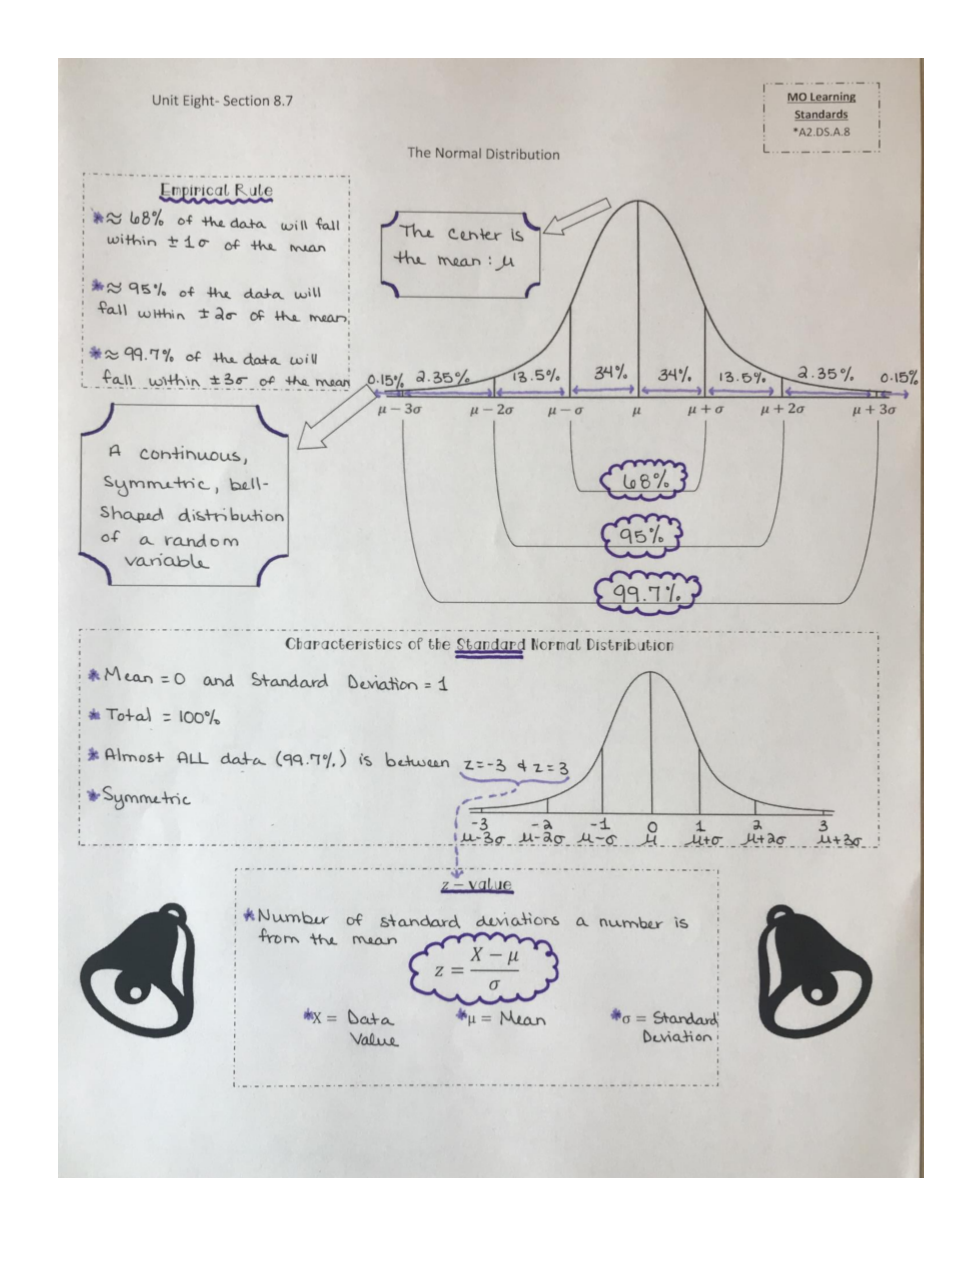 Unit Eight- Section 8.7
MO Learning
Standards
*A2.DS.A.8
The Normal Distribution
Empirical Rule
*≈ 68% of the data will fall
within ± 1σ of the mean
*≈ 95% of the data will
fall within ± 2σ of the mean
*≈ 99.7% of the data will
fall within ±3σ of the mean
The center is
the mean : μ
0.15% 2.35% 13.5% 34% 34% 13.5% 2.35% 0.15%
μ − 3σ μ − 2σ μ − σ μ μ + σ μ + 2σ μ + 3σ
A continuous,
symmetric, bell-
shaped distribution
of a random
variable
68%
95%
99.7%
Characteristics of the Standard Normal Distribution
*Mean = 0 and Standard Deviation = 1
* Total = 100%
* Almost ALL data (99.7%) is between z=-3 & z=3
*Symmetric
-3 -2 -1 0 1 2 3
μ-3σ μ-2σ μ-σ μ μ+σ μ+2σ μ+3σ
z – value
*Number of standard deviations a number is
from the mean
z = (X − μ) / σ
*X = Data
Value
*μ = Mean
*σ = Standard
Deviation